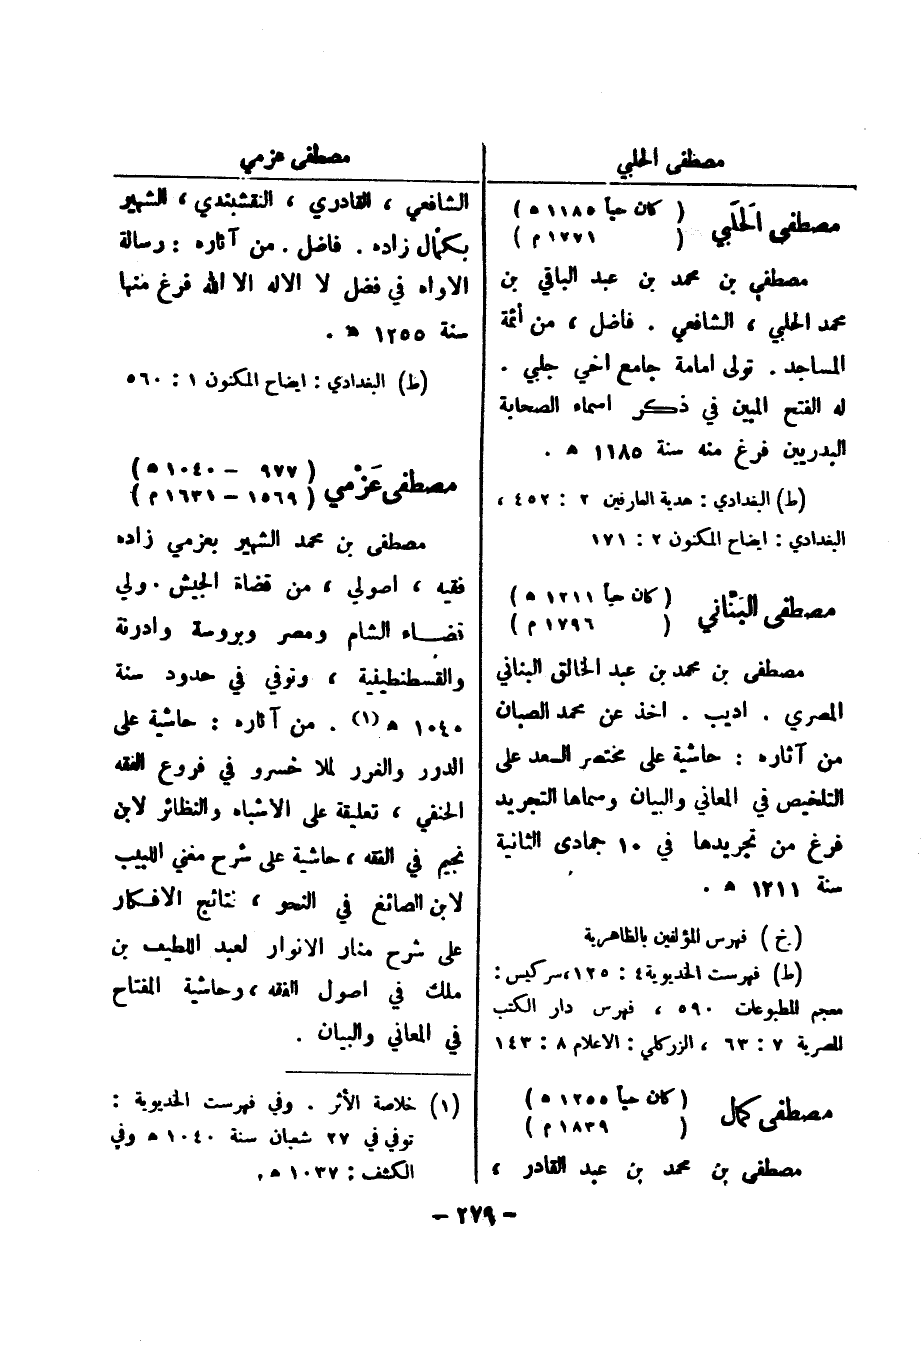 مصطفى الحلبي
مصطفى الحَلَبي
( كان حياً ١١٨٥ ه )
( ١٧٧١ م )
مصطفى بن محمد بن عبد الباقي بن
محمد الحلبي ، الشافعي . فاضل ، من أئمة
المساجد . تولى امامة جامع اخي جلبي .
له الفتح المبين في ذكر اسماء الصحابة
البدريين فرغ منه سنة ١١٨٥ ه .
(ط) البغدادي : هدية العارفين ٢ : ٤٥٢ ،
البغدادي : ايضاح المكنون ٢ : ١٧١
مصطفى البَنَّاني
( كان حياً ١٢١١ ه )
( ١٧٩٦ م )
مصطفى بن محمد بن عبد الخالق البناني
المصري . اديب . اخذ عن محمد الصبان
من آثاره : حاشية على مختصر السعد على
التلخيص في المعاني والبيان وسماها التجريد
فرغ من تجريدها في ١٠ جمادى الثانية
سنة ١٢١١ ه .
(خ) فهرس المؤلفين بالظاهرية
(ط) فهرست الخديوية ٤ : ١٢٥، سركيس :
معجم المطبوعات ٥٩٠ ، فهرس دار الكتب
المصرية ٧ : ٦٣ ، الزركلي : الاعلام ٨ : ١٤٣
مصطفى كمال
( كان حياً ١٢٥٥ ه )
( ١٨٣٩ م )
مصطفى بن محمد بن عبد القادر ،
مصطفى عزمي
الشافعي ، القادري ، النقشبندي ، الشهير
بكمال زاده . فاضل . من آثاره : رسالة
الاواه في فضل لا الاله الا الله فرغ منها
سنة ١٢٥٥ ه .
(ط) البغدادي : ايضاح المكنون ١ : ٥٦٠
مصطفى عَزْمي
( ٩٧٧ – ١٠٤٠ ه )
( ١٥٦٩ – ١٦٣١ م )
مصطفى بن محمد الشهير بعزمي زاده
فقيه ، اصولي ، من قضاة الجيش . ولي
قضاء الشام ومصر وبروسة وادرنة
والقسطنطيفية ، وتوفي في حدود سنة
١٠٤٠ ه (١) . من آثاره : حاشية على
الدرر والغرر لملا خسرو في فروع الفقه
الحنفي ، تعليقة على الاشباه والنظائر لابن
نجيم في الفقه ، حاشية على شرح مغني اللبيب
لابن الصائغ في النحو ، نتائج الافكار
على شرح منار الانوار لعبد اللطيف بن
ملك في اصول الفقه ، وحاشية المفتاح
في المعاني والبيان .
(١) خلاصة الأثر . وفي فهرست الخديوية :
توفي في ٢٧ شعبان سنة ١٠٤٠ ه وفي
الكشف : ١٠٣٧ ه .
– ٢٧٩ –